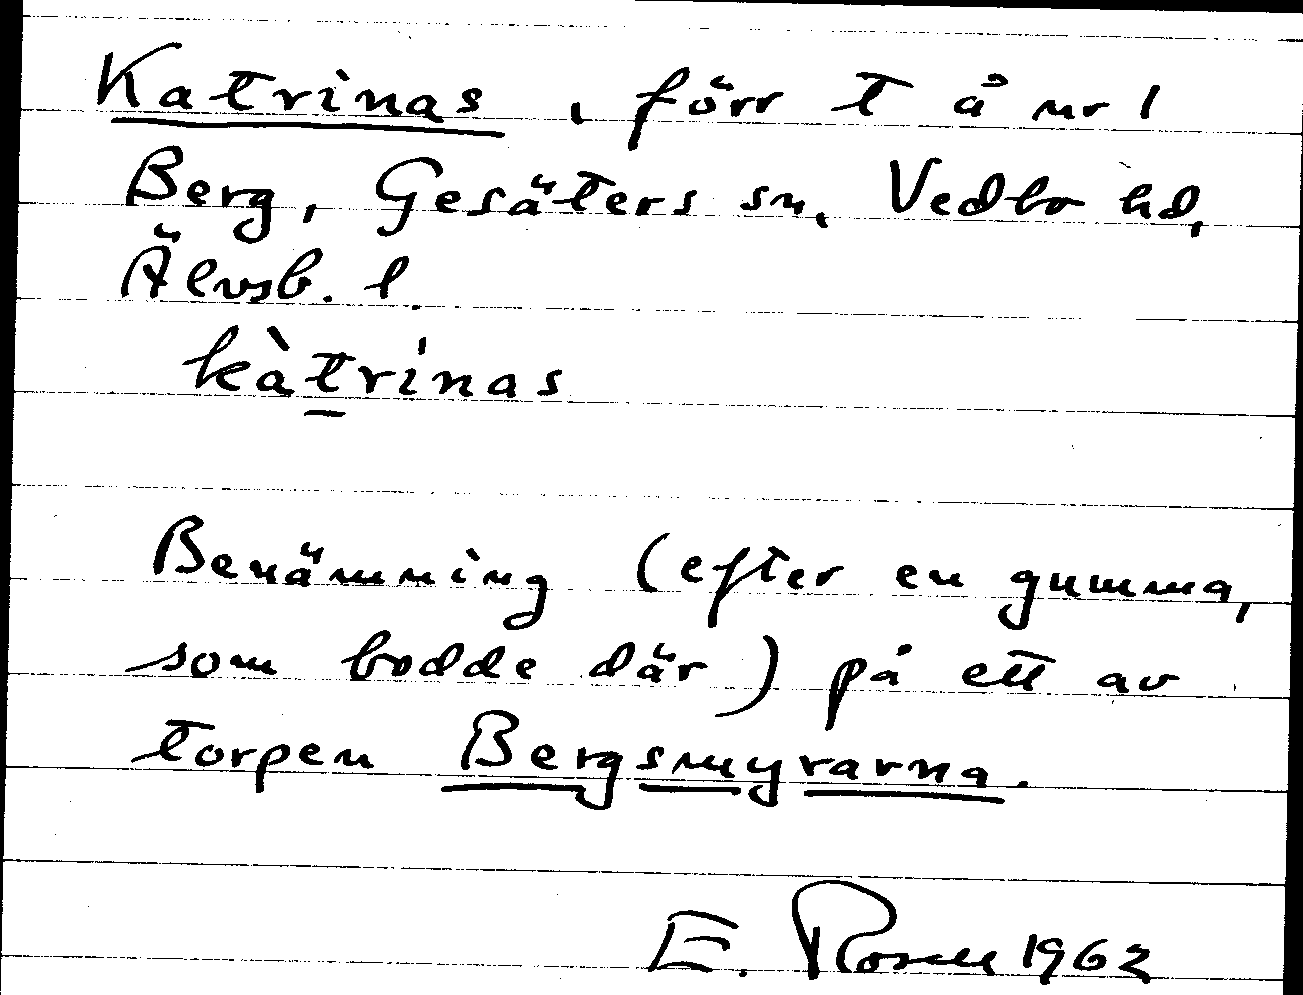 Katrinas, förr t å nr 1
Berg, Gesäters sn, Vedbo hd,
Älvsb. l.
kàtrinas
Benämning (efter en gumma,
som bodde där) på ett av
torpen Bergsmyrarna.
E. Rosell 1962